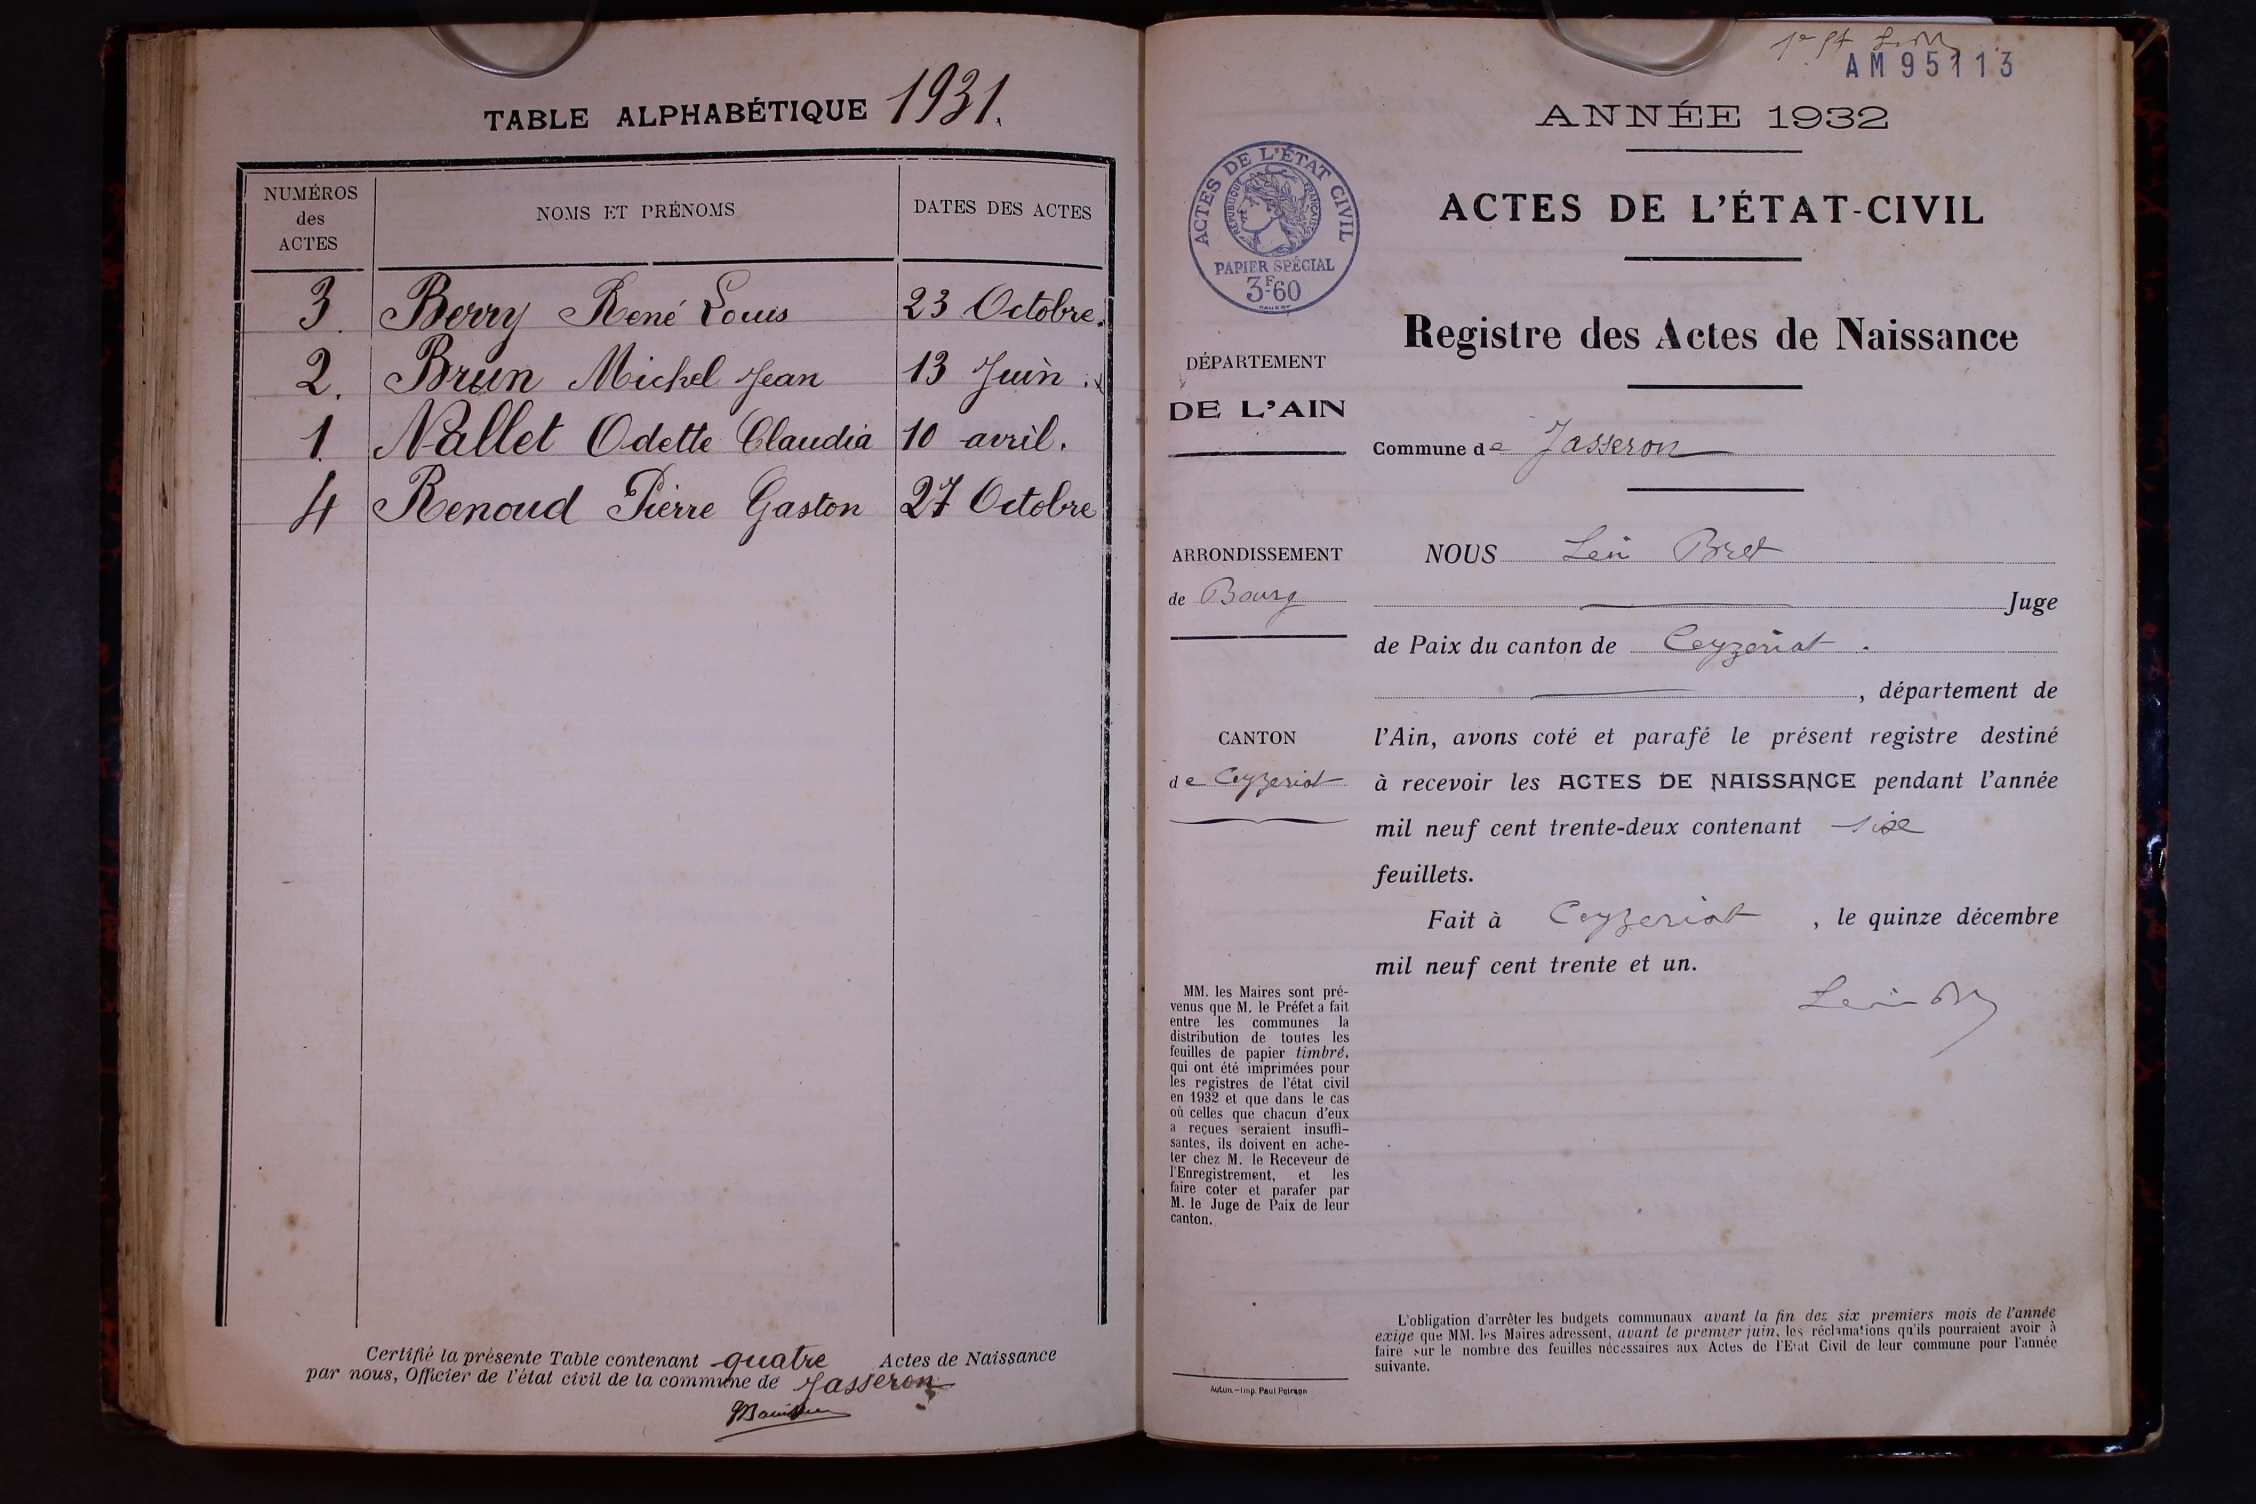 TABLE ALPHABÉTIQUE 1931.
NUMÉROS des ACTES
NOMS ET PRÉNOMS
DATES DES ACTES
3. Berry René Louis 23 Octobre.
2. Brun Michel Jean 13 Juin.
1 Nallet Odette Claudia 10 avril.
4 Renoud Pierre Gaston 27 Octobre
Certifié la présente Table contenant quatre Actes de Naissance
par nous, Officier de l'état civil de la commune de Jasseron
1e ft
AM95113
ANNÉE 1932
ACTES DE L'ÉTAT CIVIL
RÉPUBLIQUE FRANÇAISE
PAPIER SPÉCIAL
3F60
ACTES DE L'ÉTAT-CIVIL
Registre des Actes de Naissance
DÉPARTEMENT
DE L'AIN
Commune de Jasseron
ARRONDISSEMENT
de Bourg
NOUS Léon Bret
Juge
de Paix du canton de Ceyzériat.
, département de
CANTON
de Ceyzeriat
l'Ain, avons coté et parafé le présent registre destiné
à recevoir les ACTES DE NAISSANCE pendant l'année
mil neuf cent trente-deux contenant six
feuillets.
Fait à Ceyzeriat, le quinze décembre
mil neuf cent trente et un.
MM. les Maires sont pré-
venus que M. le Préfet a fait
entre les communes la
distribution de toutes les
feuilles de papier timbré,
qui ont été imprimées pour
les registres de l'état civil
en 1932 et que dans le cas
où celles que chacun d'eux
a reçues seraient insuffi-
santes, ils doivent en ache-
ter chez M. le Receveur de
l'Enregistrement, et les
faire coter et parafer par
M. le Juge de Paix de leur
canton.
Autun.-Imp. Paul Poirson
L'obligation d'arrêter les budgets communaux avant la fin des six premiers mois de l'année
exige que MM. les Maires adressent, avant le premier juin, les réclamations qu'ils pourraient avoir à
faire sur le nombre des feuilles nécessaires aux Actes de l'État Civil de leur commune pour l'année
suivante.